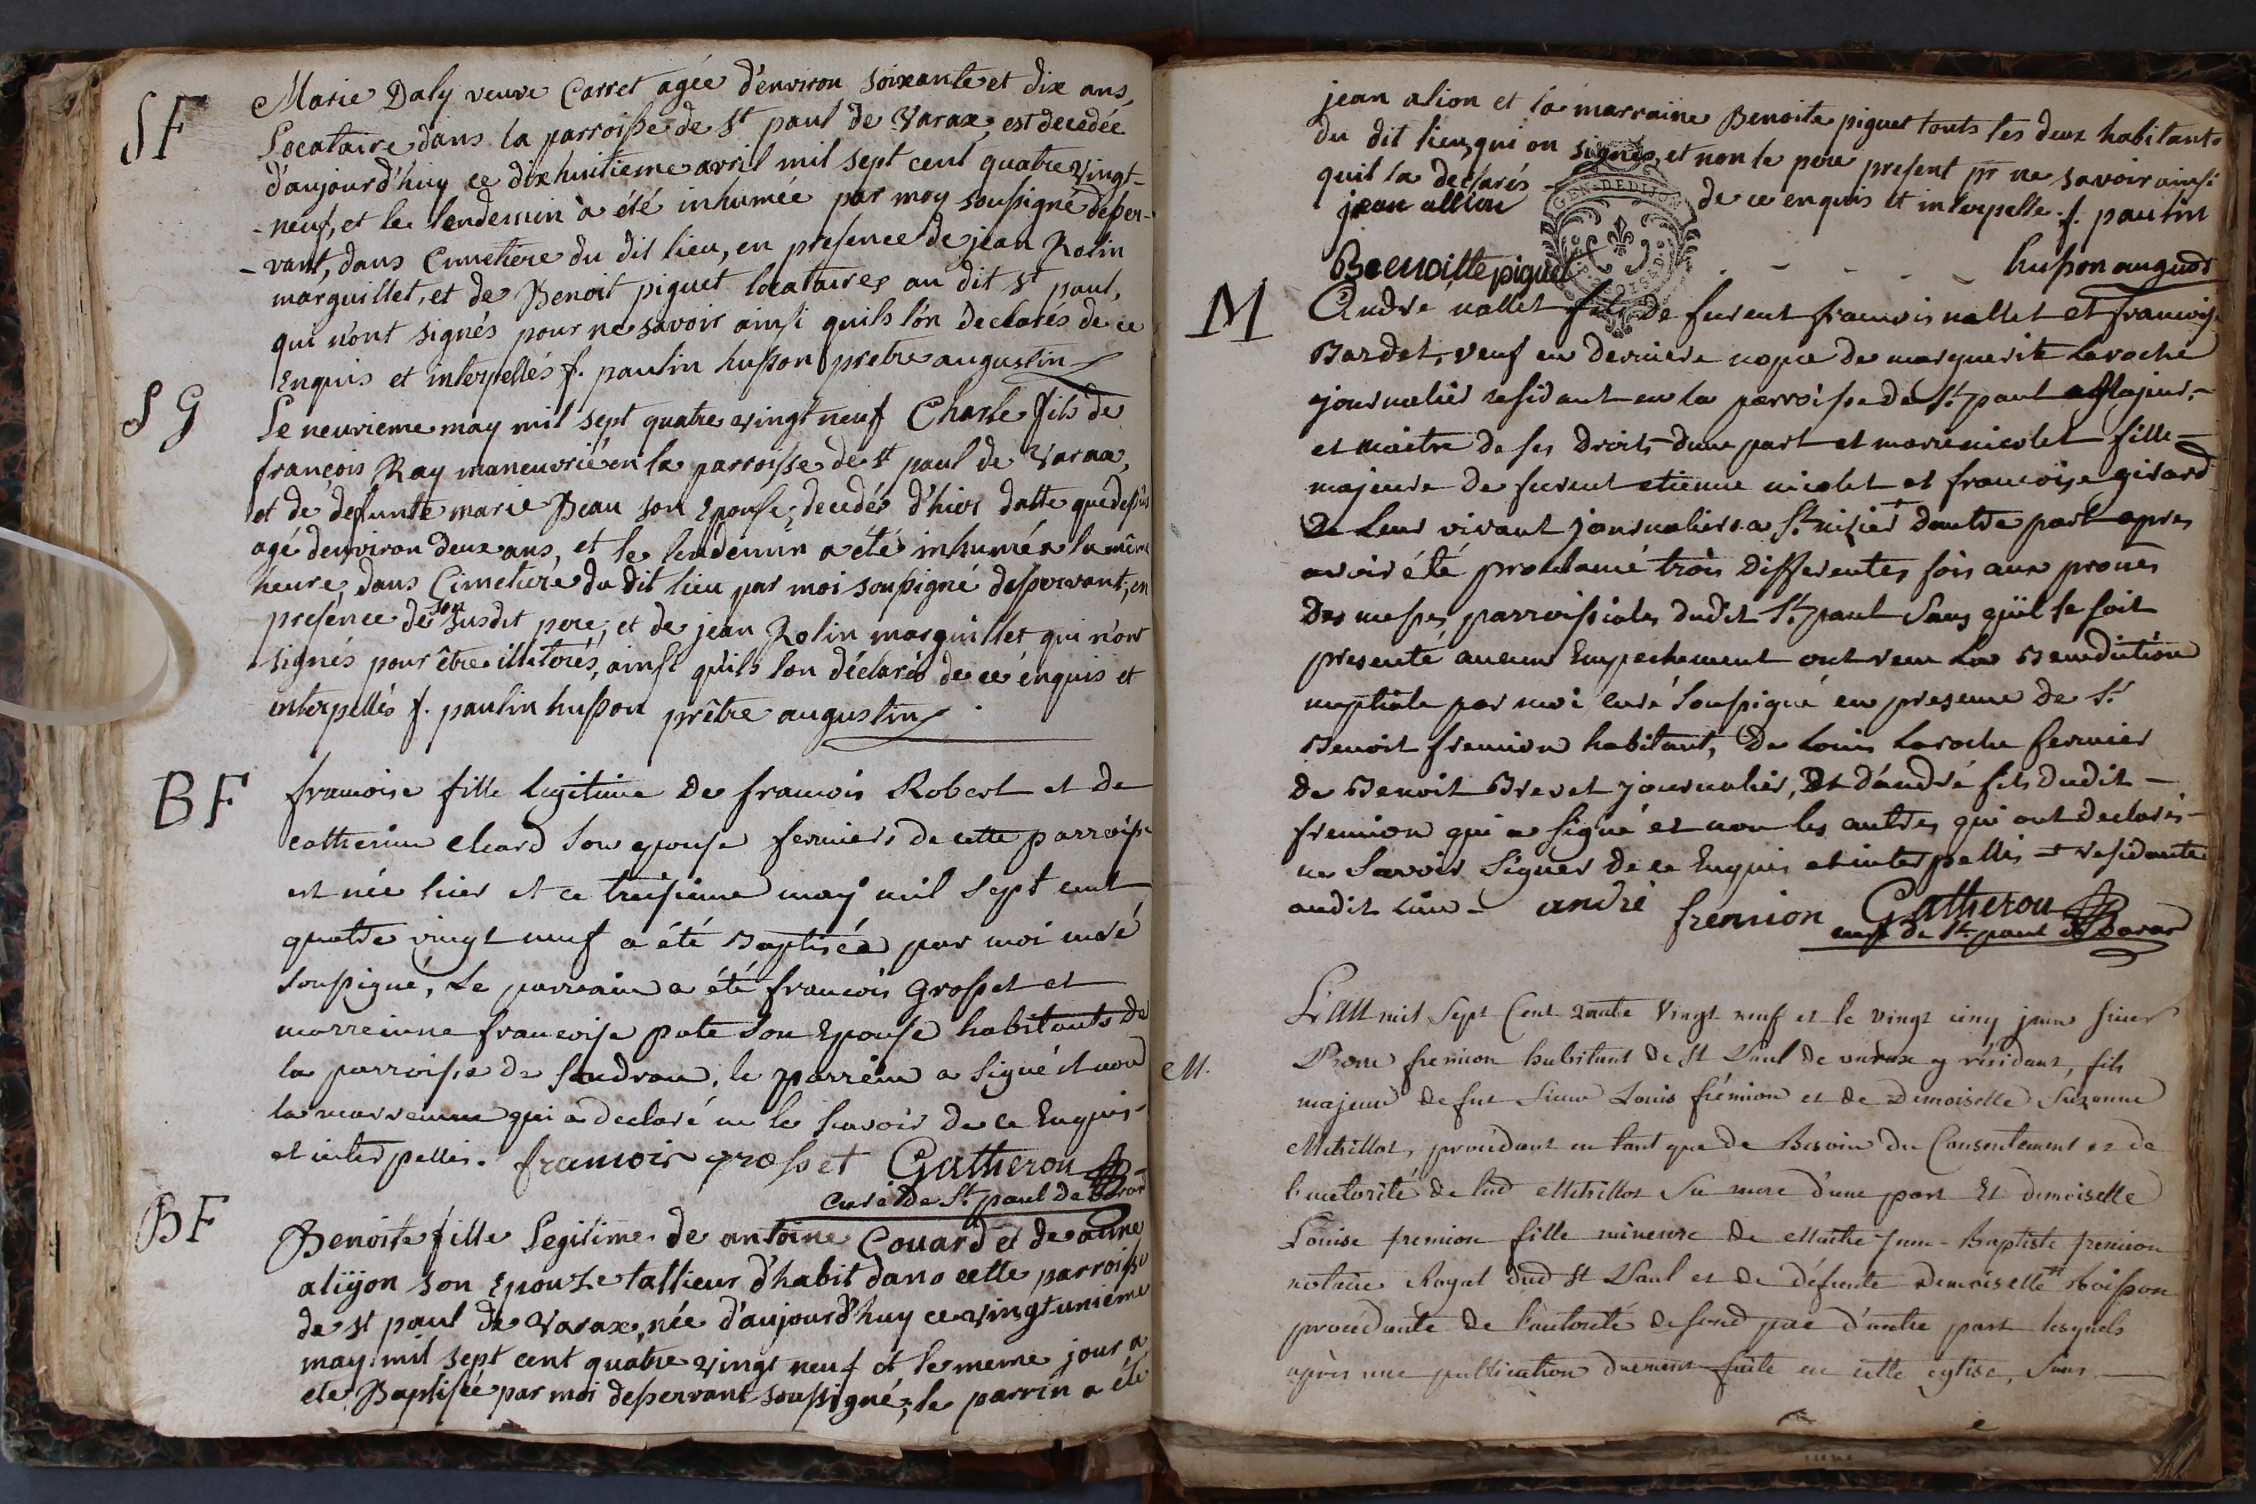 SF
Marie Daly veuve Carret agée d'environ soixante et dix ans,
Locataire dans la parroisse de St paul de Varax, est decedée
d'aujourd'huy ce dixhuitieme avril mil sept cent quatre vingt-
-neuf, et le lendemin à été inhumée par moy soussigné desser-
-vant, dans Cimetiere du dit lieu, en presence de jean Rolin
marguillet, et de Benoit piguet locataires au dit St paul,
qui n'ont signés pour ne savoir ainsi quils l'on declarés de ce
Enquis et interpellés f. paulin husson pretre augustin
SG
Le neuvieme may mil sept quatre vingt neuf Charle fils de
françois Ray maneuvrié en la parroisse de st paul de Varax,
et de defunte marie Beau son Epouse, decedés d'hier datte que
agé denviron deux ans, et le lendemin a été inhumés la même
heure, dans Cimetiere du dit lieu par moi soussigné desservant, en
presence de son susdit pere, et de jean Rolin marguillet qui n'ont
signés pour être illitorés, ainsi qu'ils l'on déclarés de ce énquis et
interpellés f. paulin husson prêtre augustin
BF
francoise fille legitime de francois Robert et de
catherine chard son epouse fermiers de cette parroisse
est née hier et ce treisieme may mil sept cent
quatre vingt neuf a été Baptisée par moi curé
soussigné, Le parrain a été francois grosset et
marreinne francoise pate son Epouse habitants de
la parroisse de sandran, le parrein a signé et non
la marreinne qui a declaré ne le savoir de ce Enquis-
et interpellés. francois grosset Gatheron
curé de St. paul de Varax
BF
Benoite fille Legitime de antoine Couard et de anne
aliyon son Epouze tallieur d'habit dans cette parroisse
de st paul de Varax, née d'aujourd'huy ce vingt unième
may mil sept cent quatre vingt neuf et le meme jour a
ete Baptisée par moi desservant soussigné, le parrin a été
jean alion et la marraine Benoite piguet touts les deux habitants
du dit lieu, qui on signés, et non le pere present pr ne savoir ainsi
quil la declarés de ce enquis et interpelle. f. paulin
jean allion
GEN. DE DIJON
Beenoitte piguet husson august
M
Andre nallet fils de furent francois nallet et francoise
Bardet, veuf en derniere nopce de marguerite Laroche
journalier residant en la parroisse de St. paul Majeur,-
et maitre de ses Droits d'une part et marie nicolet fille-
majeure de furent etienne nicolet et francoise girard
De leur vivant journaliers a St. nizier d'autre part apres
avoir été proclamé trois differentes fois aux prones
Des messes parroissiales dudit St. paul sans qu'il se soit
presenté aucun Empechement ont recu La Benediction
nuptiale par moi curé soussigné en presence de Sr.
Benoit fremion habitant, De Louis Laroche fermier
de Benoit Brevet journalier, Et d'andré fils dudit-
fremion qui a signé et non les autres qui ont declarés-
ne savoir signer de ce Enquis et interpellés residants
audit lieu- andré fremion Gatheron
curé de St. paul de Varax
M.
L'an mil sept Cent quatre Vingt neuf et le vingt cinq juin sieur
fremion habitant de St Paul de varax y résidant, fils
majeur de fut Sieur Louis frémion et de Demoiselle Suzanne
Mitrillot, procédant en tant que de Besoin du Consentement et de
l'autorité de lad Mitrillot Sa mere d'une part Et demoiselle
Louise fremion fille mineure de Maitre Jean-Baptiste fremion
notaire Royal dud St Paul et de défunte Demoiselle
procédante de l'autorité de sond pere d'autre part lesquels
après une publication duement faite en cette eglise, Sans